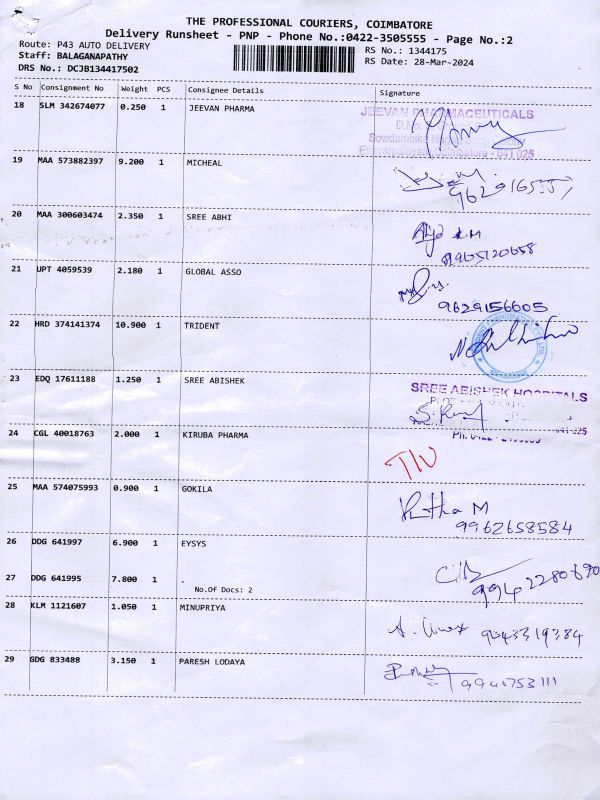 THE PROFESSIONAL COURIERS, COIMBATORE
Delivery Runsheet - PNP - Phone No.:0422-3505555 - Page No.:2
Route: P43 AUTO DELIVERY RS No.: 1344175
Staff: BALAGANAPATHY RS Date: 28-Mar-2024
DRS No.: DCJB134417502
S No Consignment No Weight PCS Consignee Details Signature
18 SLM 342674077 0.250 1 JEEVAN PHARMA
JEEVAN PHARMACEUTICALS
641 025
19 MAA 573882397 9.200 1 MICHEAL
20 MAA 300603474 2.350 1 SREE ABHI
9965120658
21 UPT 4059539 2.180 1 GLOBAL ASSO
9629156605
22 HRD 374141374 10.900 1 TRIDENT
23 EDQ 17611188 1.250 1 SREE ABISHEK
SREE ABISHEK HOSPITALS
641-025
24 CGL 40018763 2.000 1 KIRUBA PHARMA
25 MAA 574075993 0.900 1 GOKILA
9962658584
26 DDG 641997 6.900 1 EYSYS
27 DDG 641995 7.800 1
No.Of Docs: 2
9942280690
28 KLM 1121607 1.050 1 MINUPRIYA
9043319384
29 GDG 833488 3.150 1 PARESH LODAYA
9940753111